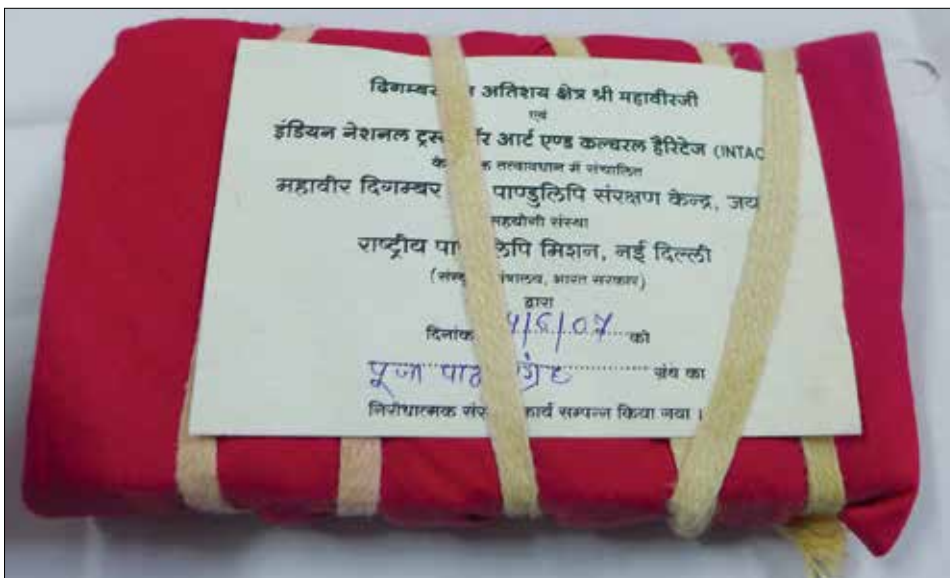 दिगम्बर अतिशय क्षेत्र श्री महावीरजी
एवं
इंडियन नेशनल आर्ट एण्ड कल्चरल हैरिटेज (INTAC
तत्वावधान में संचालित
महावीर दिगम्बर पाण्डुलिपि संरक्षण केन्द्र, जय
सहयोगी संस्था
राष्ट्रीय मिशन, नई दिल्ली
भारत सरकार)
द्वारा
दिनांक को
पूजा ग्रंथ का
निरोधात्मक कार्य सम्पन्न किया गया ।